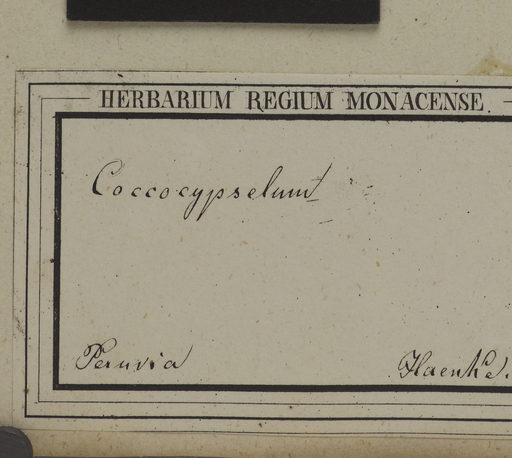 HERBARIUM REGIUM MONACENSE.
Coccocypselum
Peruvia Haenke.